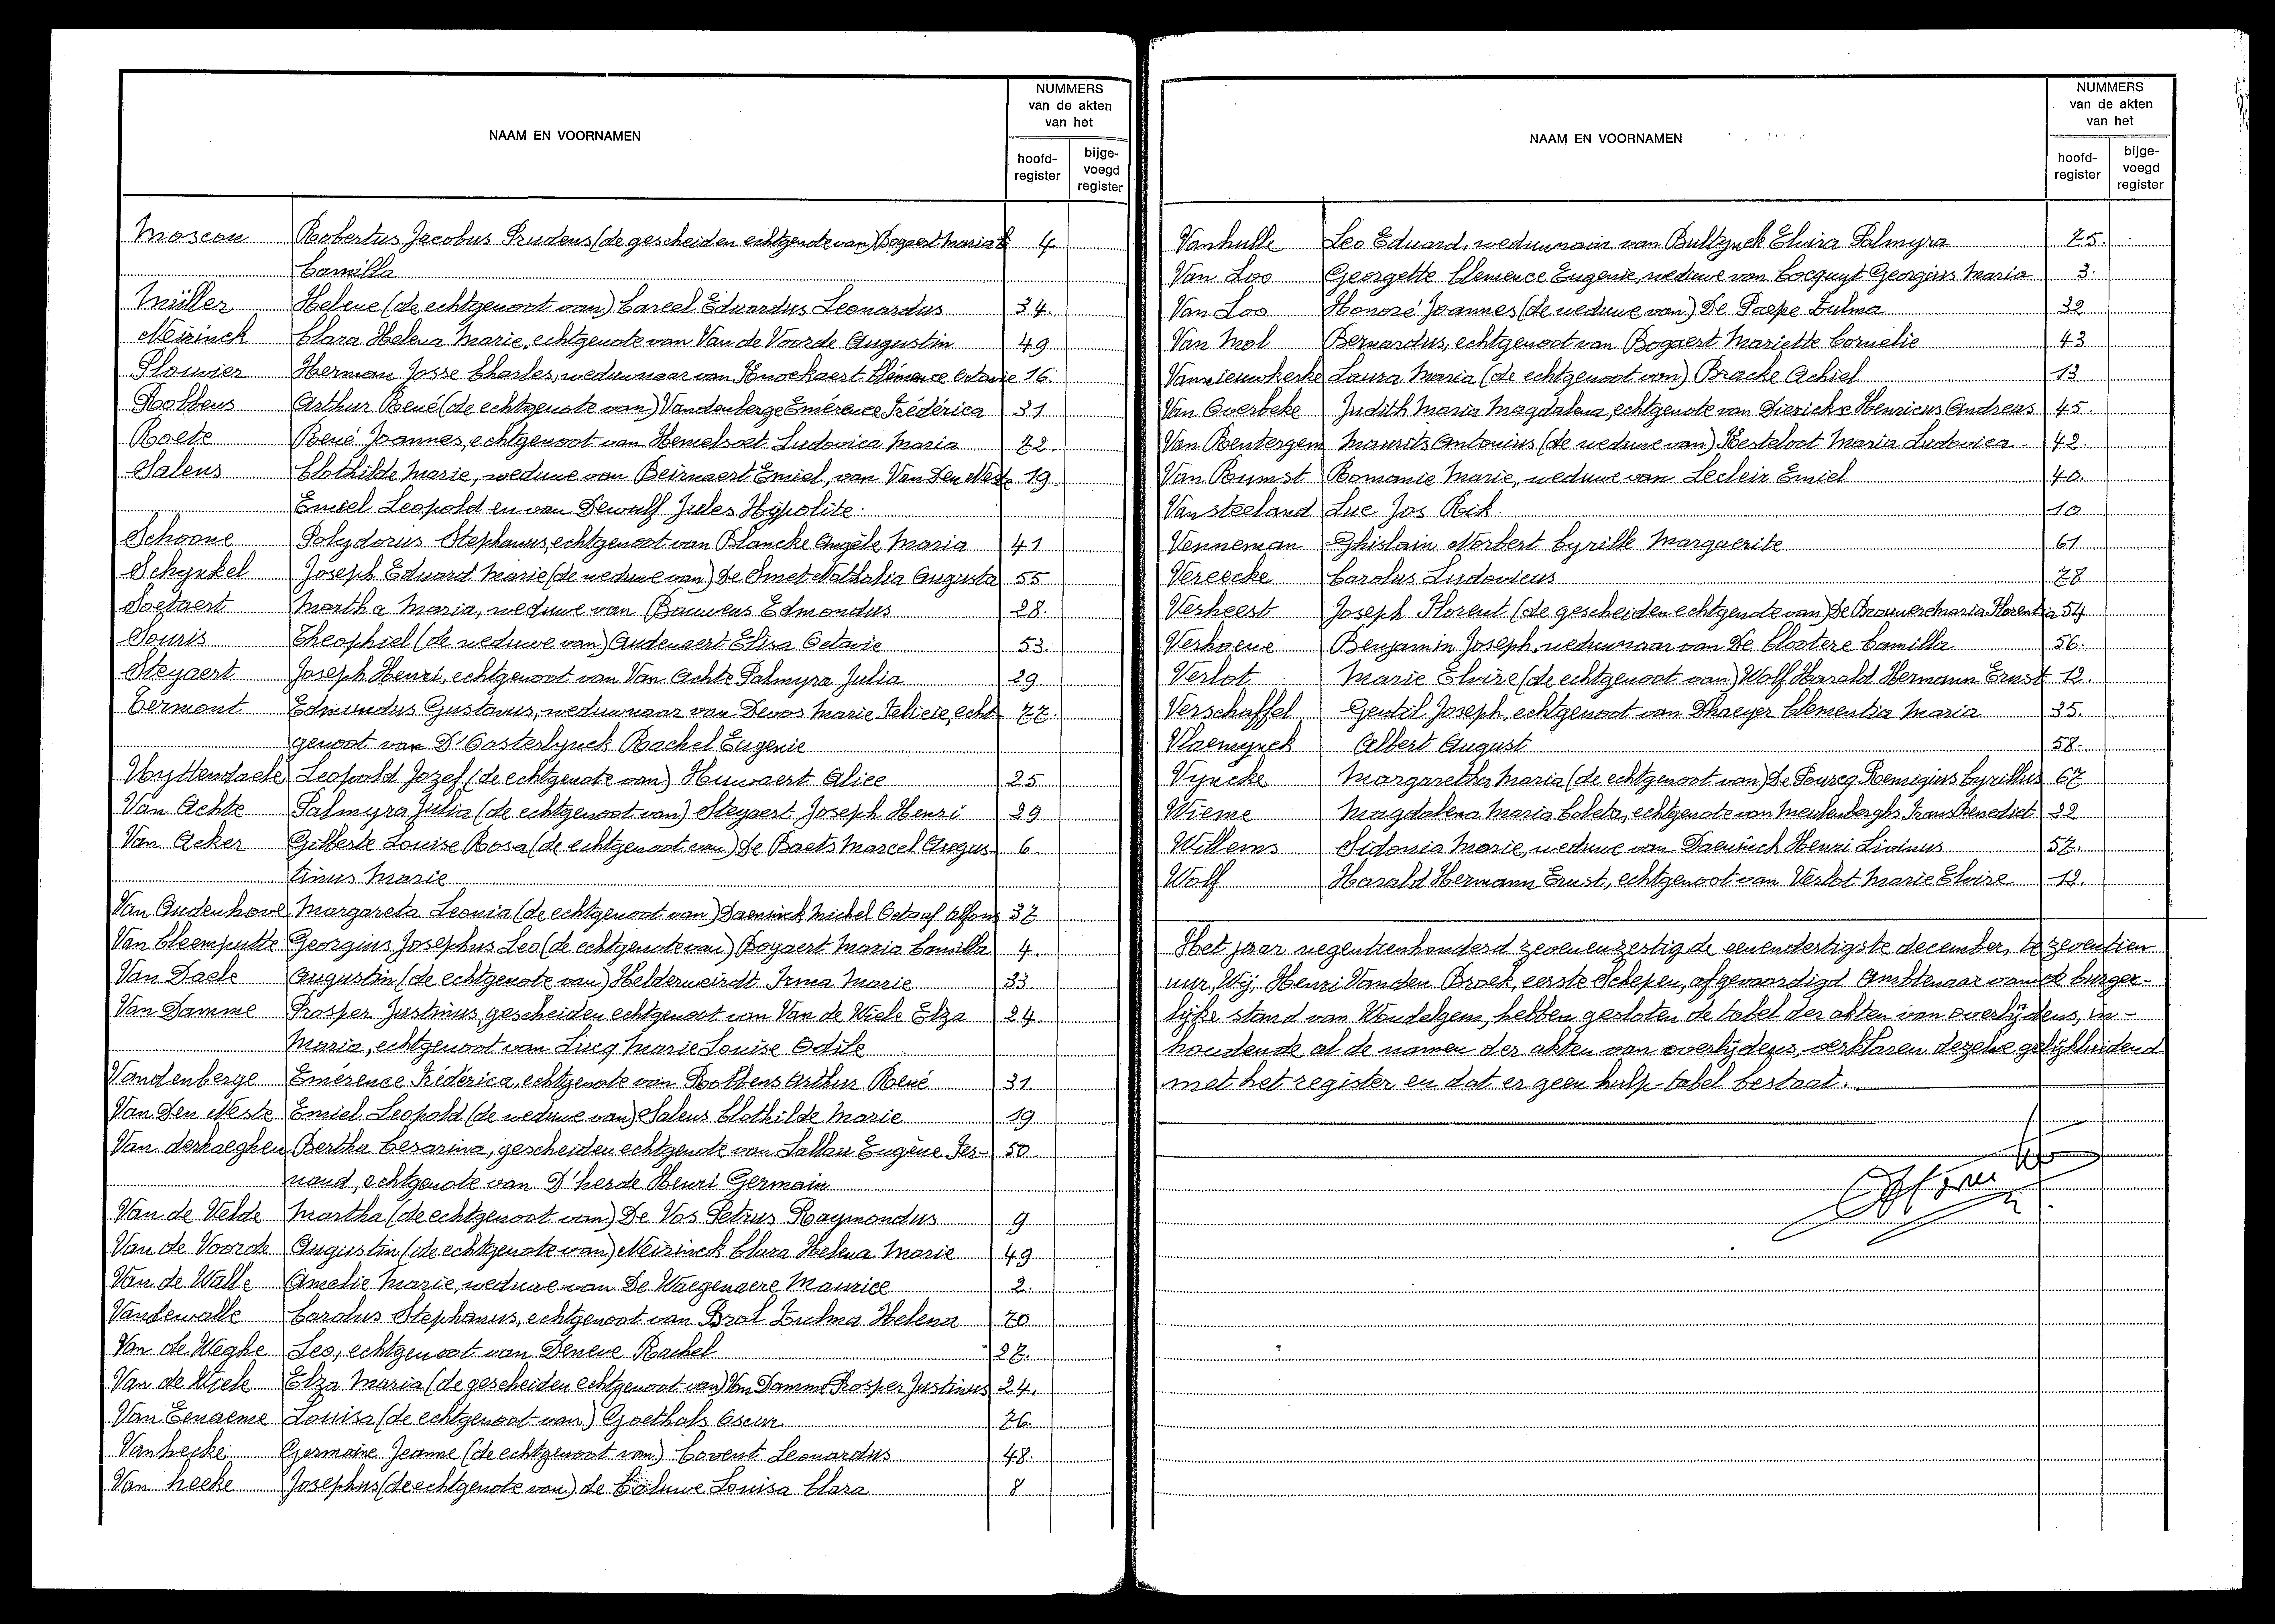 NAAM EN VOORNAMEN
NUMMERS
van de akten
van het
hoofd-
register
bijge-
voegd
register
Moscou Robertus Jacobus Prudens (de gescheiden echtgenote van) Bogaert Maria 4
Camilla
Müller Helene (de echtgenoot van) Careel Eduardus Leonardus 34.
Neirinck Clara Helena Marie, echtgenote van Van de Voorde Augustin 49
Plouvier Herman Josse Charles, weduwnaar van Knockaert Clémence Octavie 16.
Robbens Arthur René (de echtgenote van) Vandenberge Emérence Frédérica 31
Roets René Joannes, echtgenoot van Hemelsoet Ludovica Maria 72.
Salens Clothilde Marie, weduwe van Beirnaert Emiel, van Van Den Neste 19.
Emiel Leopold en van Dewulf Jules Hypolite.
Schoone Polydorus Stephanus, echtgenoot van Blancke Angèle Maria 41
Schynkel Joseph Eduard Marie (de weduwe van) De Smet Nathalia Augusta 55
Soetaert Martha Maria, weduwe van Bauwens Edmondus 28.
Souris Theophiel (de weduwe van) Audenaert Elisa Octavie 53.
Steyaert Joseph Henri, echtgenoot van Van Achte Palmyra Julia 29
Termont Edmundus Gustavus, weduwnaar van Devos Marie Feliete, echt- 77.
genoot van D'Oosterlynck Rachel Eugenie
Uyttendaele Leopold Jozef (de echtgenote van) Huwaert Alice 25
Van Achte Palmyra Julia (de echtgenoot van) Steyaert Joseph Henri 29
Van Acker Gilberte Louise Rosa (de echtgenoot van) De Baets Marcel Augus- 6.
tinus Marie
Van Audenhove Margareta Leonia (de echtgenoot van) Daeninck Michel Octaaf Alfons 37
Van Cleemputte Georgius Josephus Leo (de echtgenote van) Bogaert Maria Camilla 4.
Van Daele Augustin (de echtgenote van) Helderweirdt Irma Marie 33
Van Damme Prosper Justinus, gescheiden echtgenoot van Van de Wiele Elza 24
Maria, echtgenoot van Lucq Marie Louise Odile
Vandenberge Emérence Frédérica, echtgenote van Robbens Arthur René 31
Van Den Neste Emiel Leopold (de weduwe van) Salens Clothilde Marie 19
Van derhaeghen Bertha Cesarina, gescheiden echtgenote van Sallau Eugène Fer- 50
nand, echtgenote van D'herde Henri Germain
Van de Velde Martha (de echtgenoot van) De Vos Petrus Raymondus 9
Van de Voorde Augustin (de echtgenote van) Neirinck Clara Helena Marie 49
Van de Walle Amelie Marie, weduwe van De Waegenaere Maurice 2.
Vandewalle Carolus Stephanus, echtgenoot van Bral Zulma Helena 70
Van de Weghe Leo, echtgenoot van Deneve Rachel 27.
Van de Wiele Elza Maria (de gescheiden echtgenoot van) Van Damme Prosper Justinus 24.
Van Eenaeme Louisa (de echtgenoot van) Goethals Oscar 76.
Vanhecke Germaine Jeanne (de echtgenoot van) Covent Leonardus 48.
Van hecke Josephus (de echtgenote van) de Caluwe Louisa Clara 8
NAAM EN VOORNAMEN
NUMMERS
van de akten
van het
hoofd-
register
bijge-
voegd
register
Vanhulle Leo Eduard, weduwnair van Bultynck Elvira Palmyra 75.
Van Loo Georgette Clemence Eugenie, weduwe van Cocquyt Georgius Maria 3.
Van Loo Honoré Joannes (de weduwe van) De Paepe Zulma 32
Van Mol Bernardus, echtgenoot van Bogaert Mariette Cornelie 43
Vannieuwkerke Laura Maria (de echtgenoot van) Bracke Achiel 13
Van Overbeke Judith Maria Magdalena, echtgenote van Dierickx Henricus Andreas 45.
Van Rentergem Maurits Antonius (de weduwe van) Hesteloot Maria Ludovica 42.
Van Rumst Romanie Marie, weduwe van Lecleir Emiel 40.
Van steeland Luc Jos Rik. 10
Venneman Ghislain Norbert Cyrille Marguerite 61
Vereecke Carolus Ludovicus 78
Verheest Joseph Florent (de gescheiden echtgenote van) De Brouwer Maria Florentia 54
Verhoeve Benjamin Joseph, weduwnaar van De Clootere Camilla 56.
Verlot Marie Elvire (de echtgenoot van) Wolf Harald Hermann Ernst 12.
Verschaffel Gentil Joseph, echtgenoot van Dhaeyer Clementia Maria 35.
Vlaemynck Albert August 58.
Vyncke Margaretha Maria (de echtgenoot van) De Pourcq Remigius Cyrillus 67
Wieme Magdalena Maria Coleta, echtgenote van Meulenberghs Frans Benedict 22
Willems Sidonia Marie, weduwe van Daeninck Henri Livinus 57.
Wolf Harald Hermann Ernst, echtgenoot van Verlot Marie Elvire 12.
Het jaar negentienhonderd zevenenzestig de eenendertigste december, te zeventien
uur, Wij Henri Vanden Broek, eerste Schepen, afgevaardigd Ambtenaar van de burger-
lijke stand van Wondelgem, hebben gesloten de tabel der akten van overlijdens, in-
houdende al de namen der akten van overlijdens, verklaren dezelve gelijkluidend
met het register en dat er geen hulp-tabel bestaat.